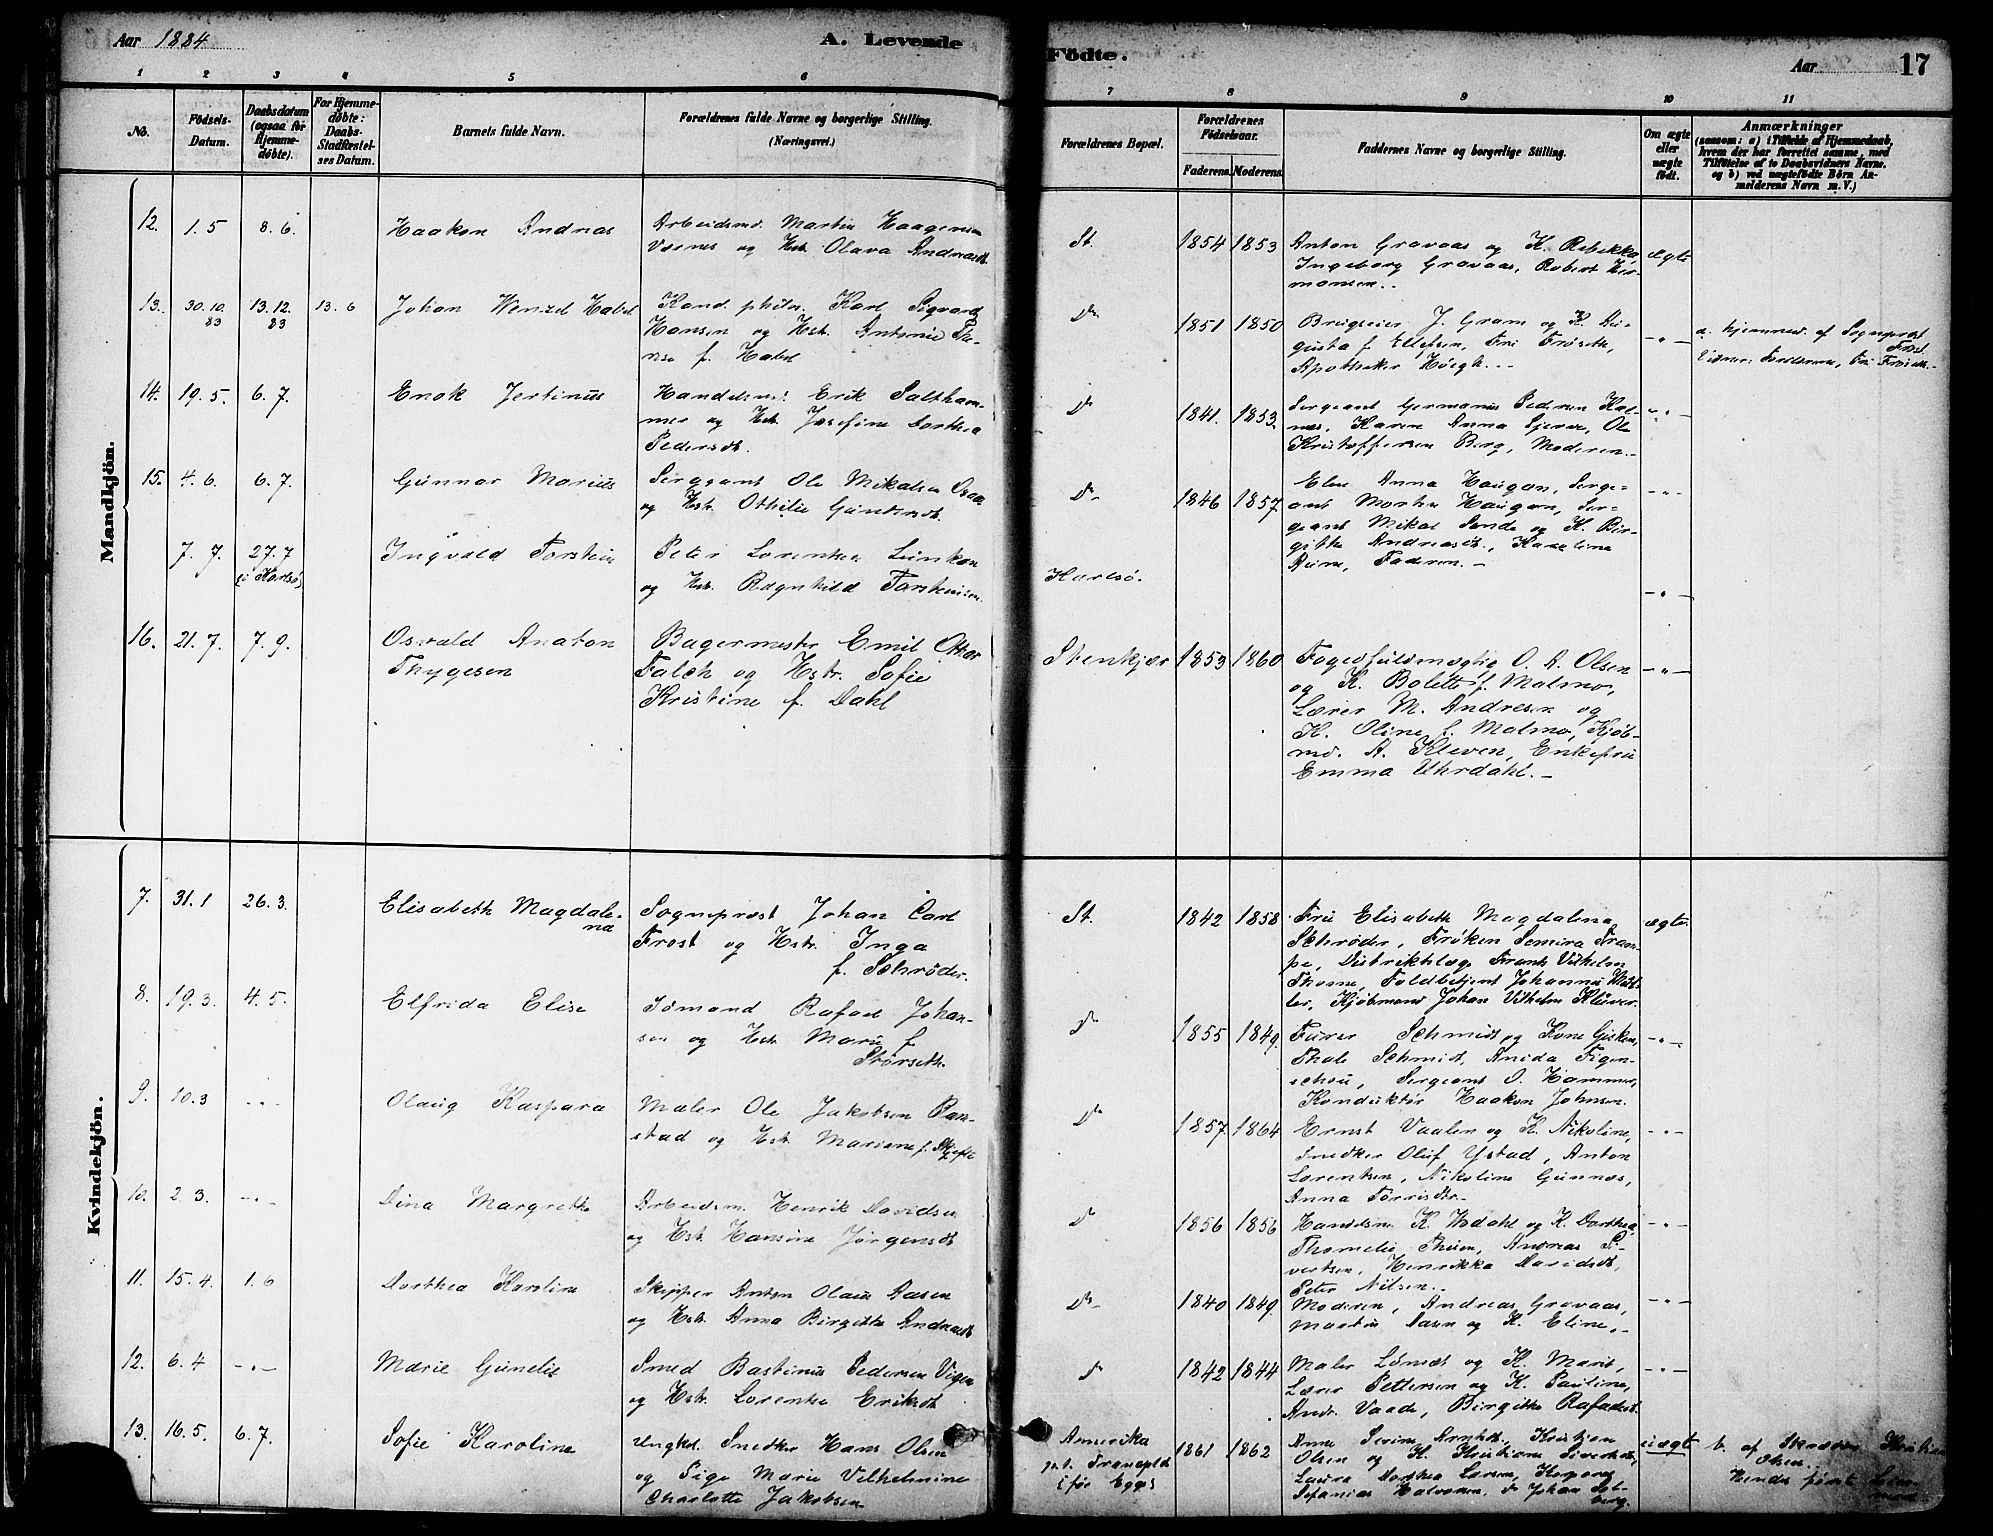 Aar 1884
A. Levende
Födte.
Aar
17
1 2 3 4 5 6 7 8 9 10 11
No.
Födsels-
Datum.
Daabsdatum
(ogsaa for
Hjemme-
døbte).
For Hjemme-
døbte:
Daabs-
Stadfæstel-
ses Datum.
Barnets fulde Navn.
Forældrenes fulde Navne og borgerlige Stilling.
(Næringsvei.)
Forældrenes Bopæl.
Forældrenes
Fødselsaar.
Faderens. Moderens.
Faddernes Navne og borgerlige Stilling.
Om ægte
eller
uægte
født.
Anmærkninger
(saasom: a) i Tilfælde af Hjemmedaab,
hvem der har forrettet samme, med
Tilføielse af to Daabsvidners Navne.
og b) ved uægtefødte Børn An-
melderens Navn m. V.)
Mandkjön.
12. 1.5 8.6. Haakon Andreas
Arbeidsmd. Martin Haagensen
Værnes og Hst. Olava Andreasdt.
St. 1854 1853
Anton Gravaas og K. Rebekka,
Ingeborg Gravaas, Robert Her-
mansen.
ægte
13. 30.10. 83 13.12. 83 13.6 Johan Wenzel Habel
Kand. philos. Karl Sigvard
Hansen og Hst. Antonie The-
rese f. Habel
Do 1851 1850
Brugseier J. Gram og K. Au-
gusta f. Ellefsen, Frk. Frøseth,
Apotheker Høegh.
-"-
a. hjemmed. af Sognepræst
Frost.
Vidner: Faderen, Frk. Frøseth.
14. 19.5. 6.7. Enok Jertinus
Handelsmd. Erik Saltham-
mer og Hst. Josefine Dorthea
Pedersdt.
Do 1841. 1853.
Sergeant Germanus Pedersen Kal-
nes, Karen Anna Gjerse, Ole
Kristoffersen Berg, Moderen.
-"-
15. 4.6. 6.7. Gunnar Marius
Sergeant Ole Mikalsen
og Hst. Othilie Gundersdt.
Do 1846 1857
Elen Anna Haugan, Serge-
ant Morten Haugan, Ser-
geant Mikal Sende og K. Bir-
gitte Andreasdt., Karoline
Faderen.
-"-
7.7. 27.7 (i Karlsø) Ingvald Torstein
Peter Lorentsen
og Hst. Ragnhild Torsteinsen
Karlsø.
-"-
16. 21.7. 7.9. Osvald Anaton
Thygesen
Bagermester Emil Othar
Falch og Hstr. Sofie
Kristine f. Dahl
Stenkjær 1853 1860
Fogedfuldmægtig O. A. Olsen
og K. Bolette f. Malmo,
Lærer M. Andresen og
K. Oline f. Malmo, Kjøb-
md. A. Kleven, Enkefru
Emma Uhrdahl.
-"-
Kvindekjön.
7. 31.1 26.3. Elisabeth Magdale-
na
Sognepræst Johan Carl
Frost og Hstr. Inga
f. Schrøder.
St. 1842 1858
Frue Elisabeth Magdalena
Schrøder, Frøken Semira Tram-
pe, Distriktslæge Frants Vilhelm
Thome, Toldbetjent Johannes
Kjøbmand Johan Vilhelm Klüver.
ægte.
8. 19.3. 4.5. Elfrida Elise
Sømand Rafael Johan-
sen og Hst. Marie f.
Størseth.
Do 1855 1849.
Furer Schmidt og Kone Gjeken,
Thale Schmidt, Anida Figen-
schou, Sergeant O. Hammer,
Konduktør Haakon Johnsen.
-"-
9. 10.3 -"- Olaug Kaspara
Maler Ole Jakobsen Ran-
stad og Hst. Mariane f. Skjefte
Do 1857 1864
Ernst Vaalen og K. Nikoline,
Snedker Oluf Ystad, Anton
Lorentsen, Nikoline Gunnes,
Anna Torrisdtr.
-"-
10. 2.3. -"- Dina Margrethe
Arbeidsm. Henrik Davidsen
og Hst. Hansine Jørgensdt
Do 1856 1856
Handelsm. K. Wodahl og K. Dorthea,
Thomelie Thisen, Andreas Si-
vertsen, Henrikka Davidsdt,
Peter Nilsen.
-"-
11. 15.4. 1.6 Dorthea Karoline
Skipper Anton Olaus Aasen
og Hst. Anna Birgitte Andreasdt
Do 1840 1849
Moderen, Andreas Gravaas,
Martin Aasen og K. Eline.
-"-
12. 6.4 -"- Marie Gunelie
Smed Bastinus Pedersen Vigen
og Hst. Lorentse Eriksdt
Do 1842 1844
Maler Lømst og K. Marit,
Lærer Pettersen og K. Pauline,
Andr. Vaade, Birgitte Rafaelsdt.
-"-
13. 16.5. 6.7. Sofie Karoline
Ungkl. Snedker Hans Olsen
og Pige Marie Vilhelmine
Charlotte Jakobsen
Amerika
(før Egge)
1861 1862
Anne Serine Arntsdt., Kristian
Olsen og K. Kristiane Sivertsdt.,
Laura Dorthea Larsen,
Stefanias Halvorsen, Johan Sol-
berg.
uægte
b. af Skræder Kristian
Olsen.
Hendes første